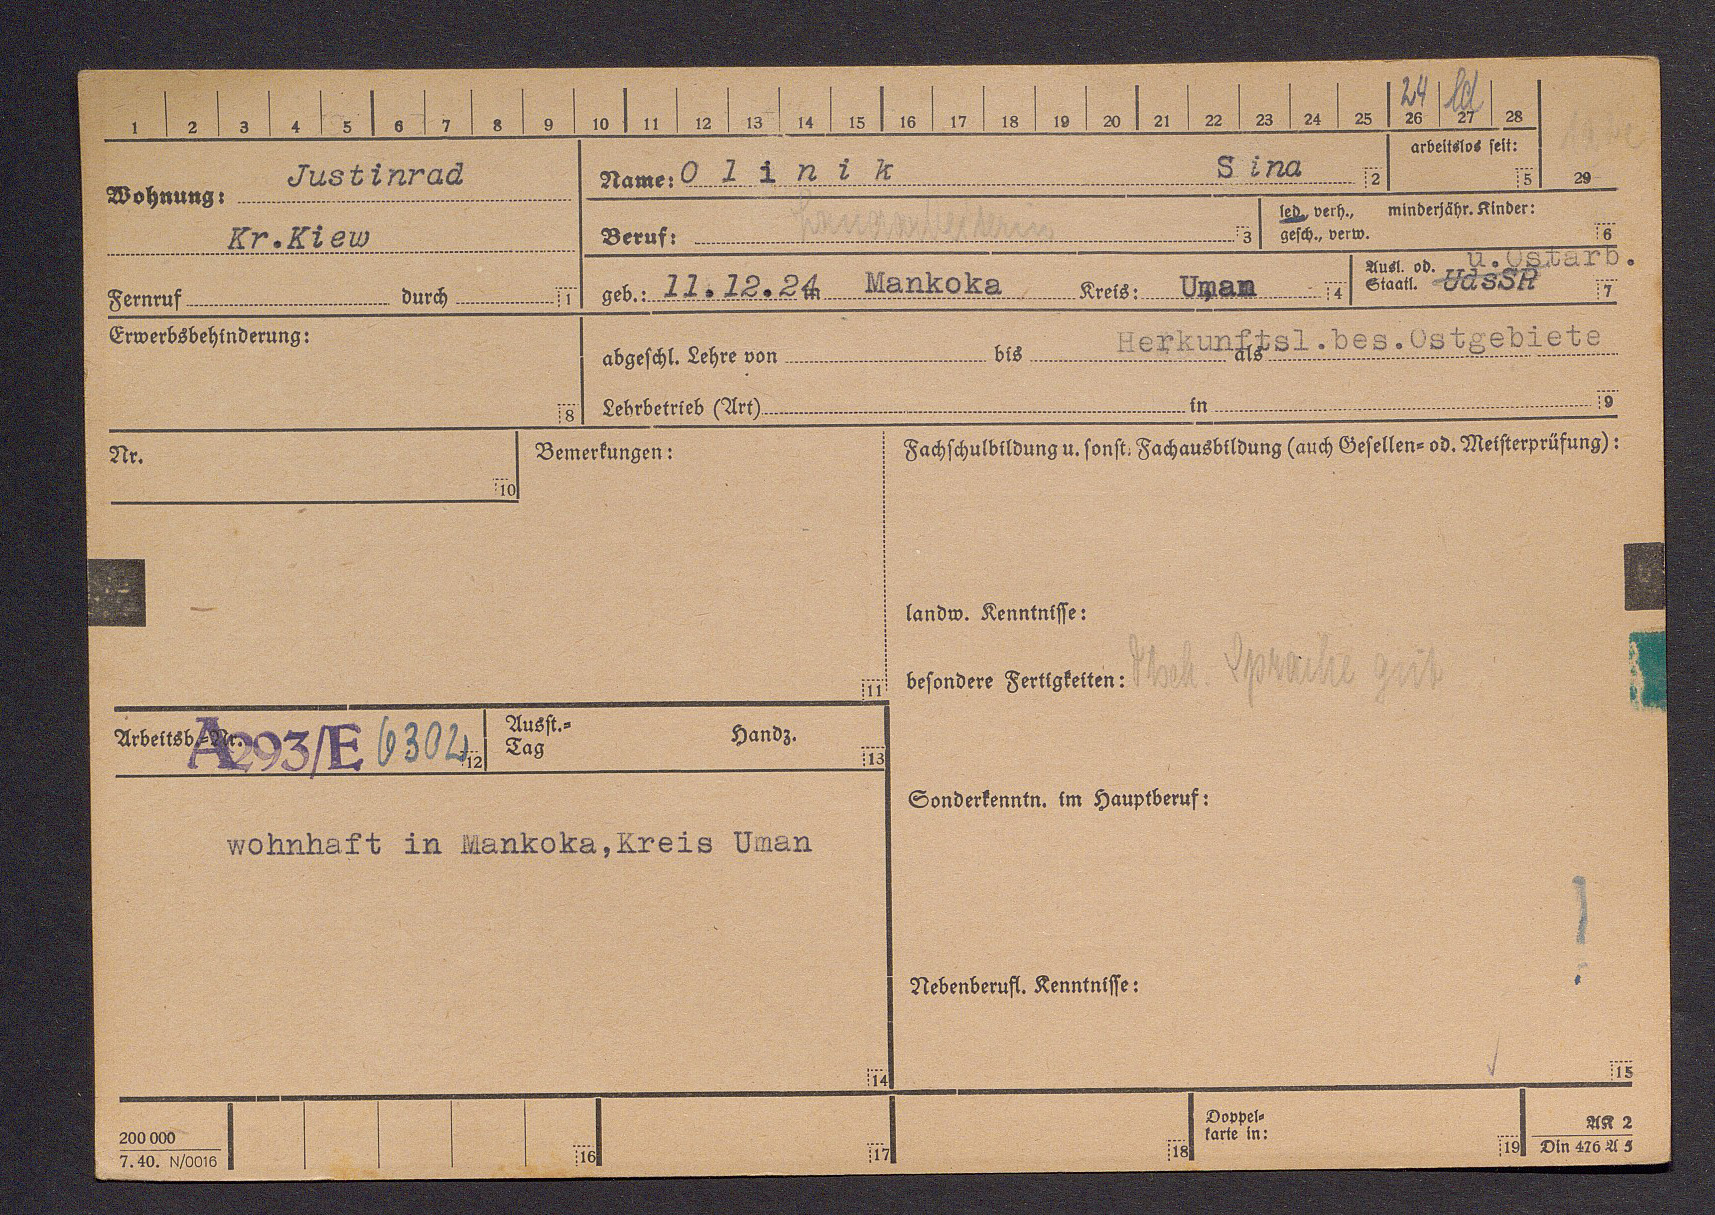 1 2 3 4 5 6 7 8 9 10 11 12 13 14 15 16 17 18 19 20 21 22 23 24 25 26 27 28
24
arbeitslos seit:
5 29
Wohnung: Justinrad
Kr.Kiew
Fernruf durch 1
Name: Olinik Sina 2
Beruf: Landarbeiterin 3
led., verh., minderjähr. Kinder:
gesch., verw. 6
geb.: 11.12.24 in Mankoka Kreis: Uman 4
Ausl. od. u.Ostarb.
Staatl. UdSSR 7
Erwerbsbehinderung:
8
Herkunftsl.bes.Ostgebiete
abgeschl. Lehre von bis als
Lehrbetrieb (Art) in 9
Nr.
10
Bemerkungen:
11
Fachschulbildung u. sonst. Fachausbildung (auch Gesellen= od. Meisterprüfung):
landw. Kenntnisse:
besondere Fertigkeiten: Dtsch. Sprache gut
Arbeitsb.=Nr. A293/E 6302 12
Ausst.=
Tag
Handz.
13
Sonderkenntn. im Hauptberuf:
wohnhaft in Mankoka,Kreis Uman
Nebenberufl. Kenntnisse:
14
15
200 000
7. 40. N/0016
16 17 18
Doppel=
karte in:
19
AK 2
Din 476 A 5